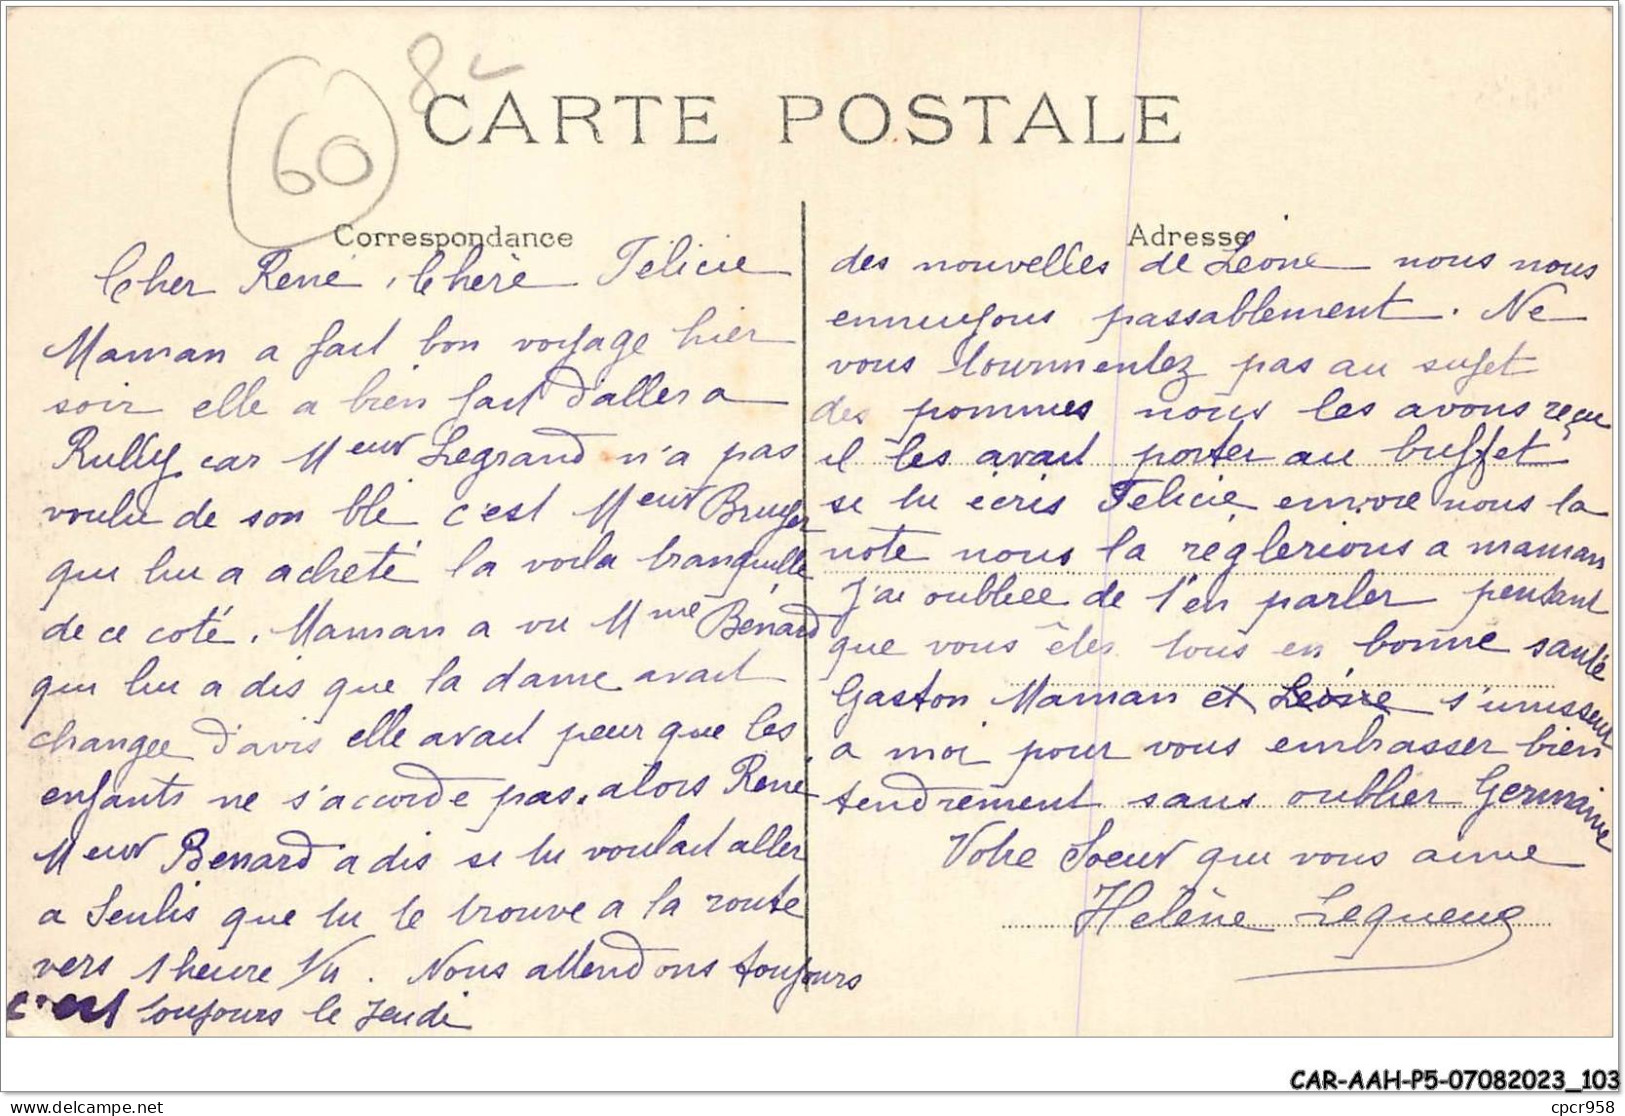 60
CARTE POSTALE
Correspondance
Cher René, Chère Félicie
Maman a fait bon voyage hier
soir elle a bien fait d'aller a
Rully car Meur Legrand n'a pas
voulu de son blé c'est Meur Bruyer
qui lui a acheté la voila tranquille
de ce coté. Maman a vu Mme Bénard
qui lui a dis que la dame avait
changée d'avis elle avait peur que les
enfants ne s'accorde pas. alors René
Meur Benard a dis si tu voulait aller
a Senlis que tu te trouve a la route
vers 1 heure ½. Nous attendons toujours
c'est toujours le Jeudi
Adresse
des nouvelles de Léone nous nous
ennuyons passablement. Ne
vous tourmentez pas au sujet
des pommes nous les avons reçu
il les avait porter au buffet
si tu écris Félicie envoie nous la
note nous la réglerions a maman
J'ai oubliée de t'en parler pensant
que vous êtes tous en bonne santé
Gaston Maman et Léone s'unissent
a moi pour vous embrasser bien
tendrement sans oublier Germaine
Votre Soeur qui vous aime
Hélène Lequeux
CAR-AAH-P5-07082023_103
delcampe.net
cpcr958